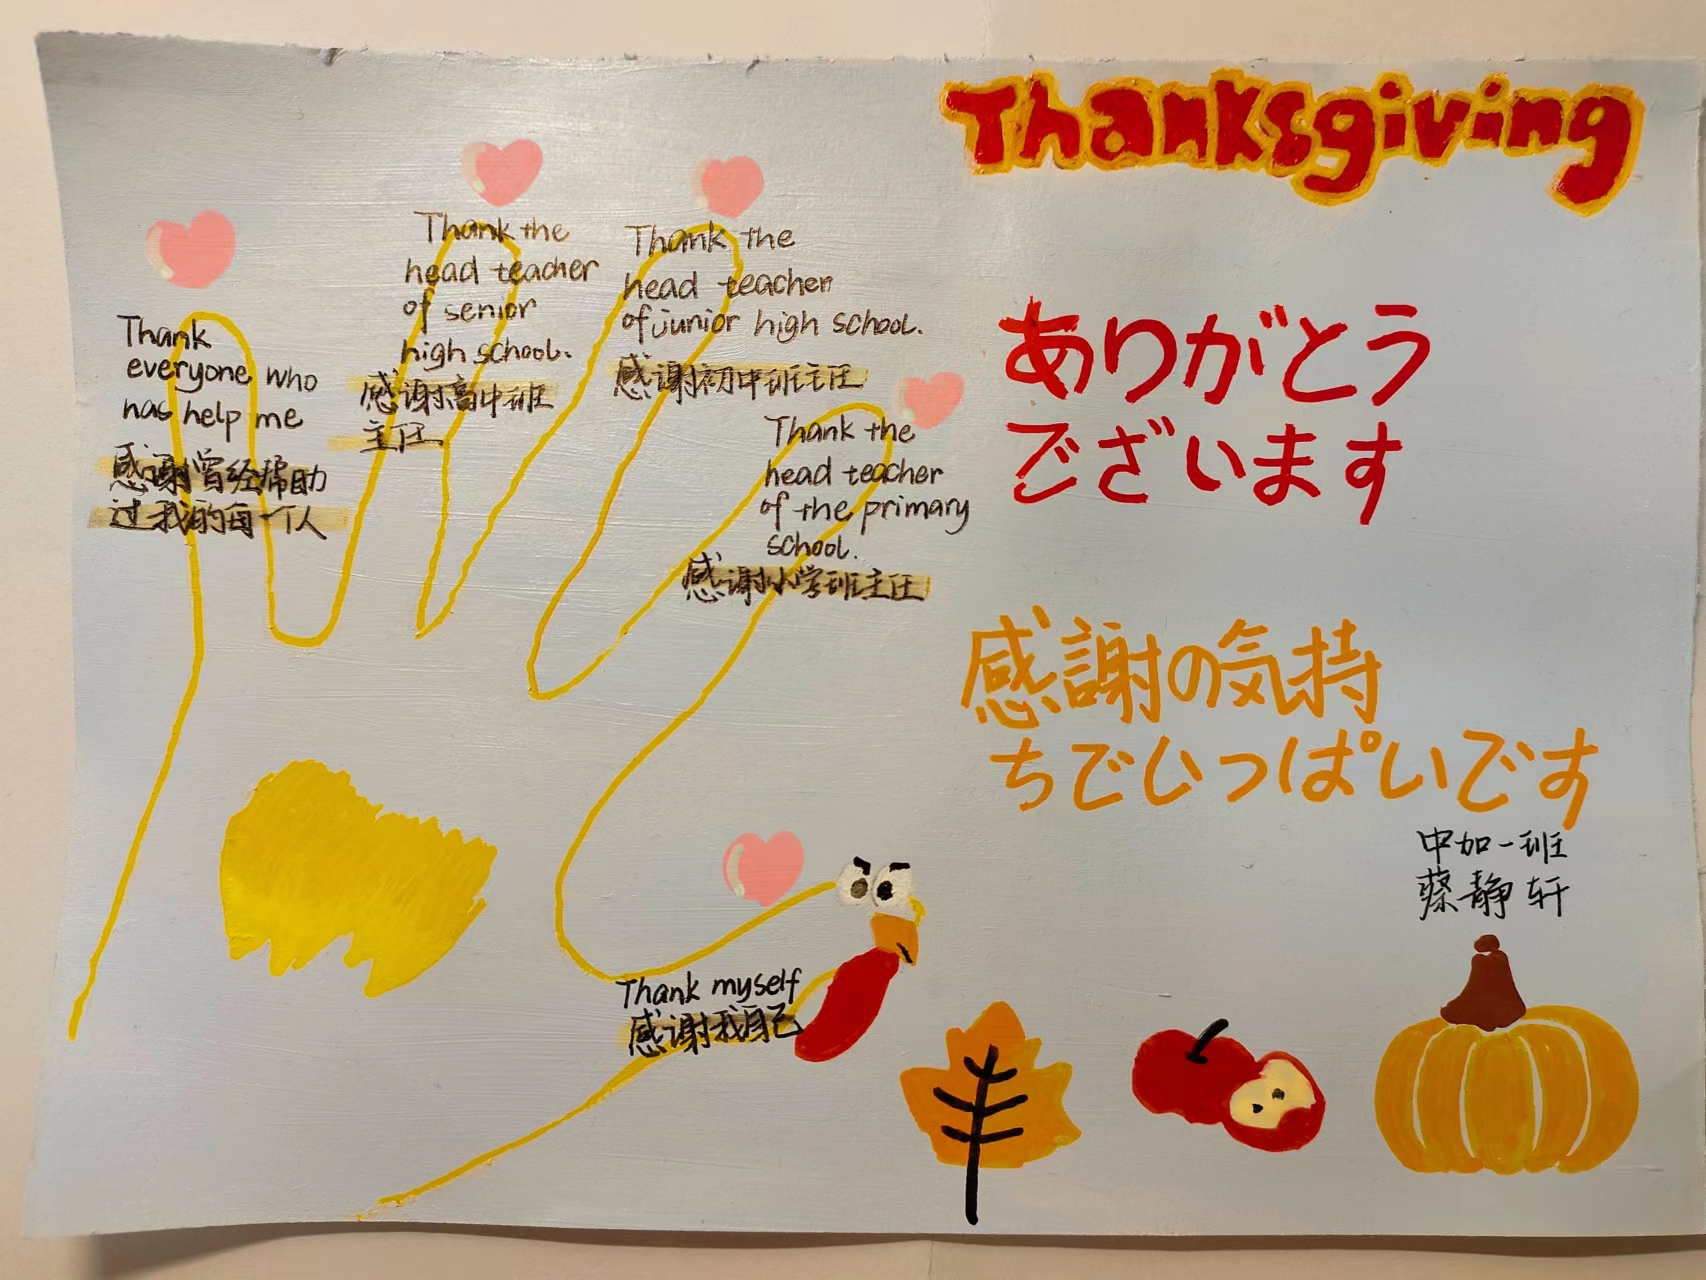 Thanksgiving
Thank
everyone who
has help me
感谢曾经帮助
过我的每一个人
Thank the
head teacher
of senior
high school.
感谢高中班
主任
Thank the
head teacher
of junior high school.
感谢初中班主任
Thank the
head teacher
of the primary
school.
感谢小学班主任
Thank myself
感谢我自己
ありがとう
ございます
感謝の気持
ちでいっぱいです
中加一班
蔡静轩